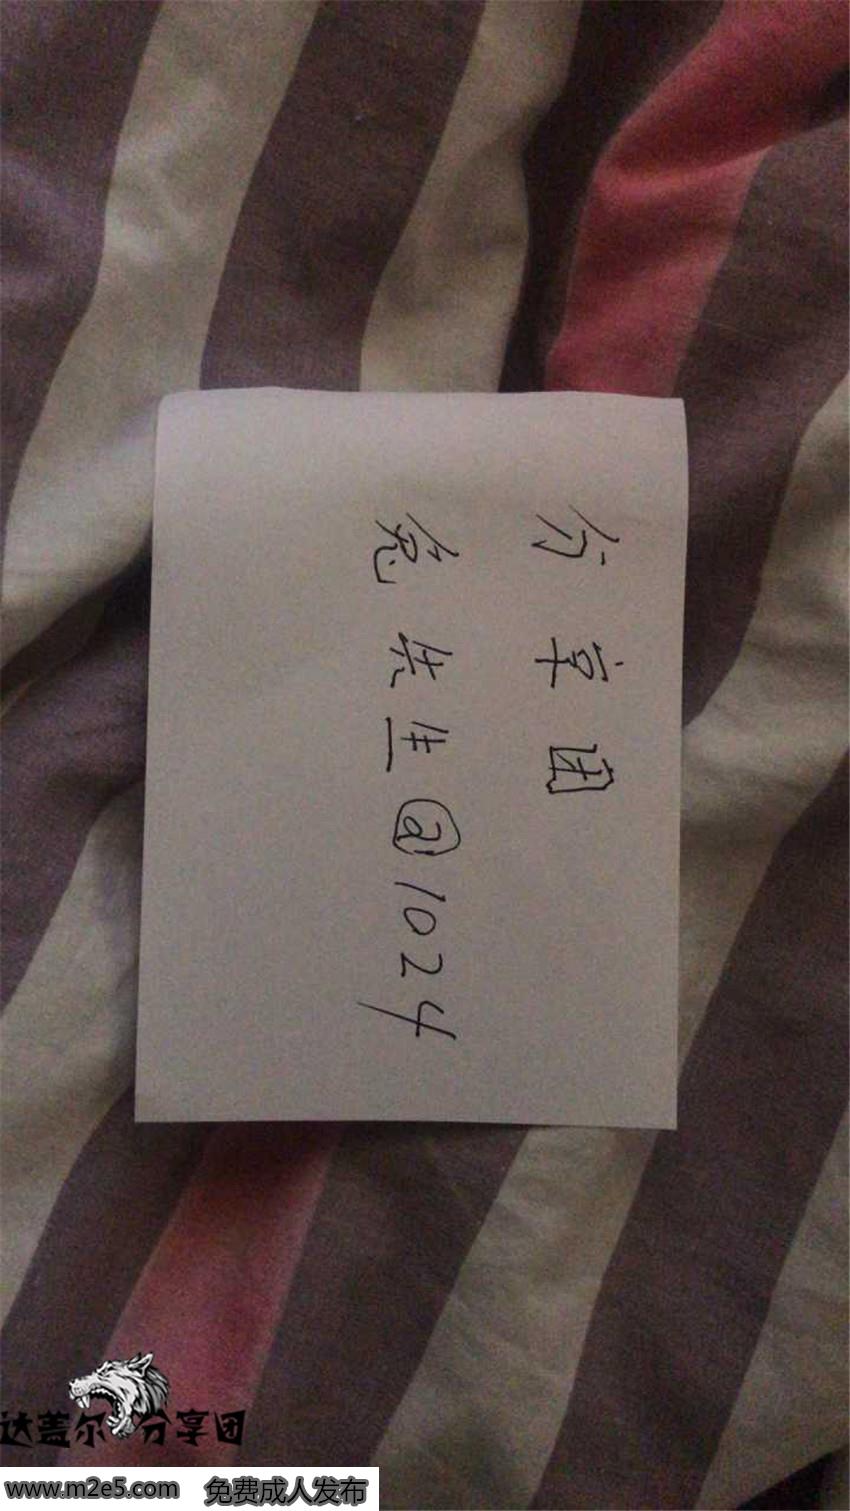 分享团
兔先生@1024
达盖尔分享团
www.m2e5.com 免费成人发布